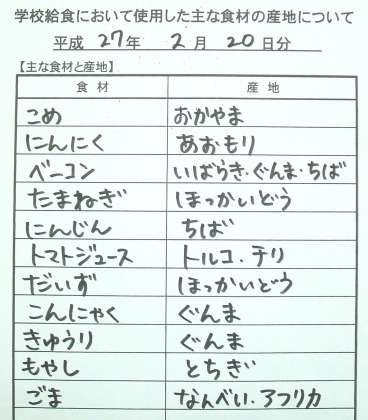 学校給食において使用した主な食材の産地について
平成 27年 2月 20日分
【主な食材と産地】
食材 産地
こめ おかやま
にんにく あおもり
ベーコン いばらき・ぐんま・ちば
たまねぎ ほっかいどう
にんじん ちば
トマトジュース トルコ・チリ
だいず ほっかいどう
こんにゃく ぐんま
きゅうり ぐんま
もやし とちぎ
ごま なんべい・アフリカ